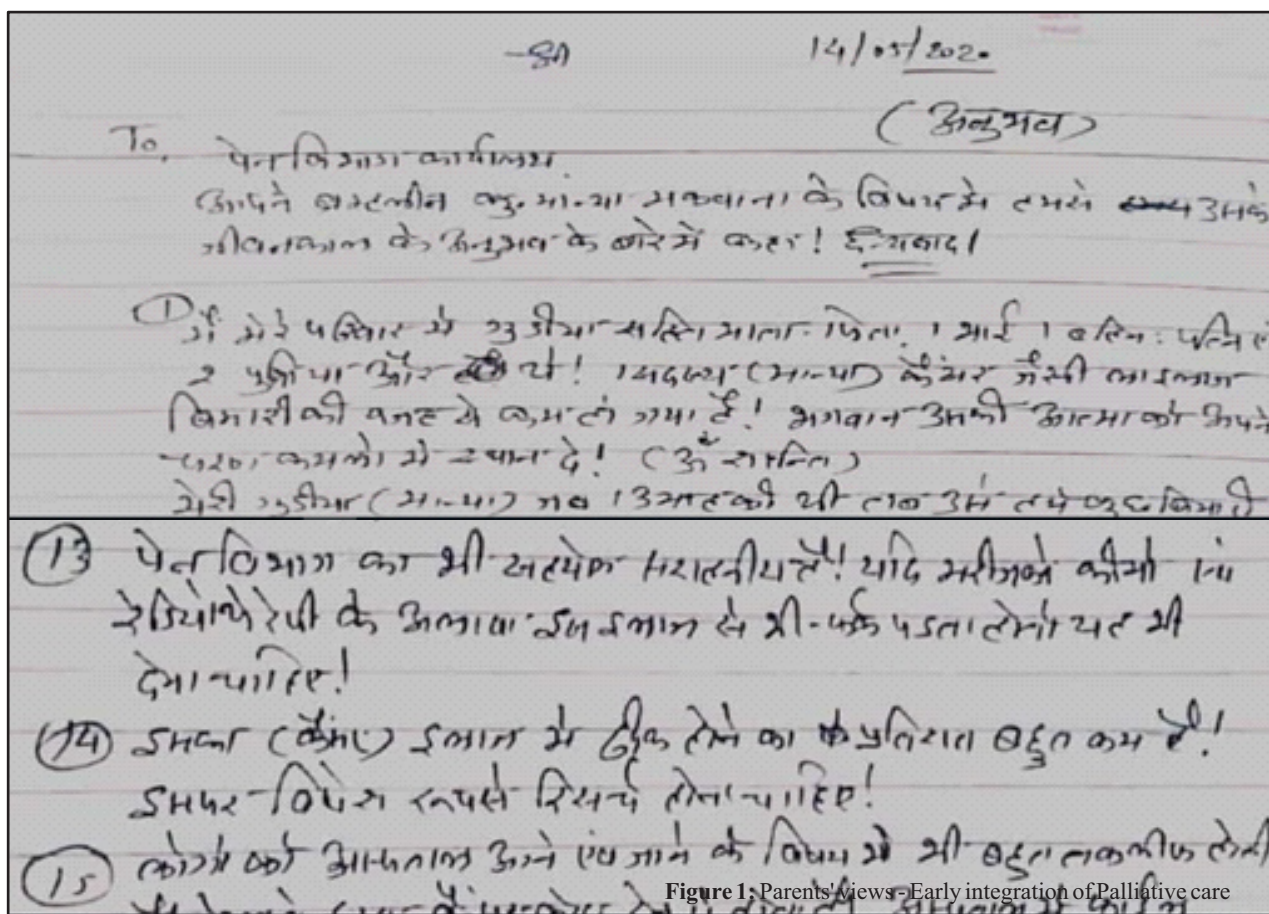 14/05/2020
(अनुभव)
To,
पेन विभाग कार्यालय
आपने ब्रम्हलीन कु. मान्या मकवाना के विषय मे हमसे उसके
जीवनकाल के अनुभव के बारे में कहा! धन्यवाद।
① मेरे परिवार मे गुडीया सहित माता-पिता, 1 भाई 1 बहिन
2 पुत्रीया और थे! 1 सदस्य (मान्या) कैंसर जैसी लाइलाज
बिमारी की वजह से कम हो गया है! भगवान उसकी आत्मा को अपने
चरण कमलो मे स्थान दे! (ॐ शान्ति)
मेरी गुडीया (मान्या) जब थी तब उसे
⑬ पेन विभाग का भी सहयोग सराहनीय है! यदि मरीज को कीमो
रेडियोथेरेपी के अलावा इस इलाज से भी फर्क पडता हे तो यह भी
देना चाहिए!
⑭ इसका (कैंसर) इलाज मे ठीक होने का प्रतिशत बहुत कम है!
इसपर विशेष रूपसे रिसर्च होना चाहिए!
⑮ लोगो को अस्पताल आने एंव जाने के विषय मे भी बहुत तकलीफ होती
Figure 1: Parents' views - Early integration of Palliative care